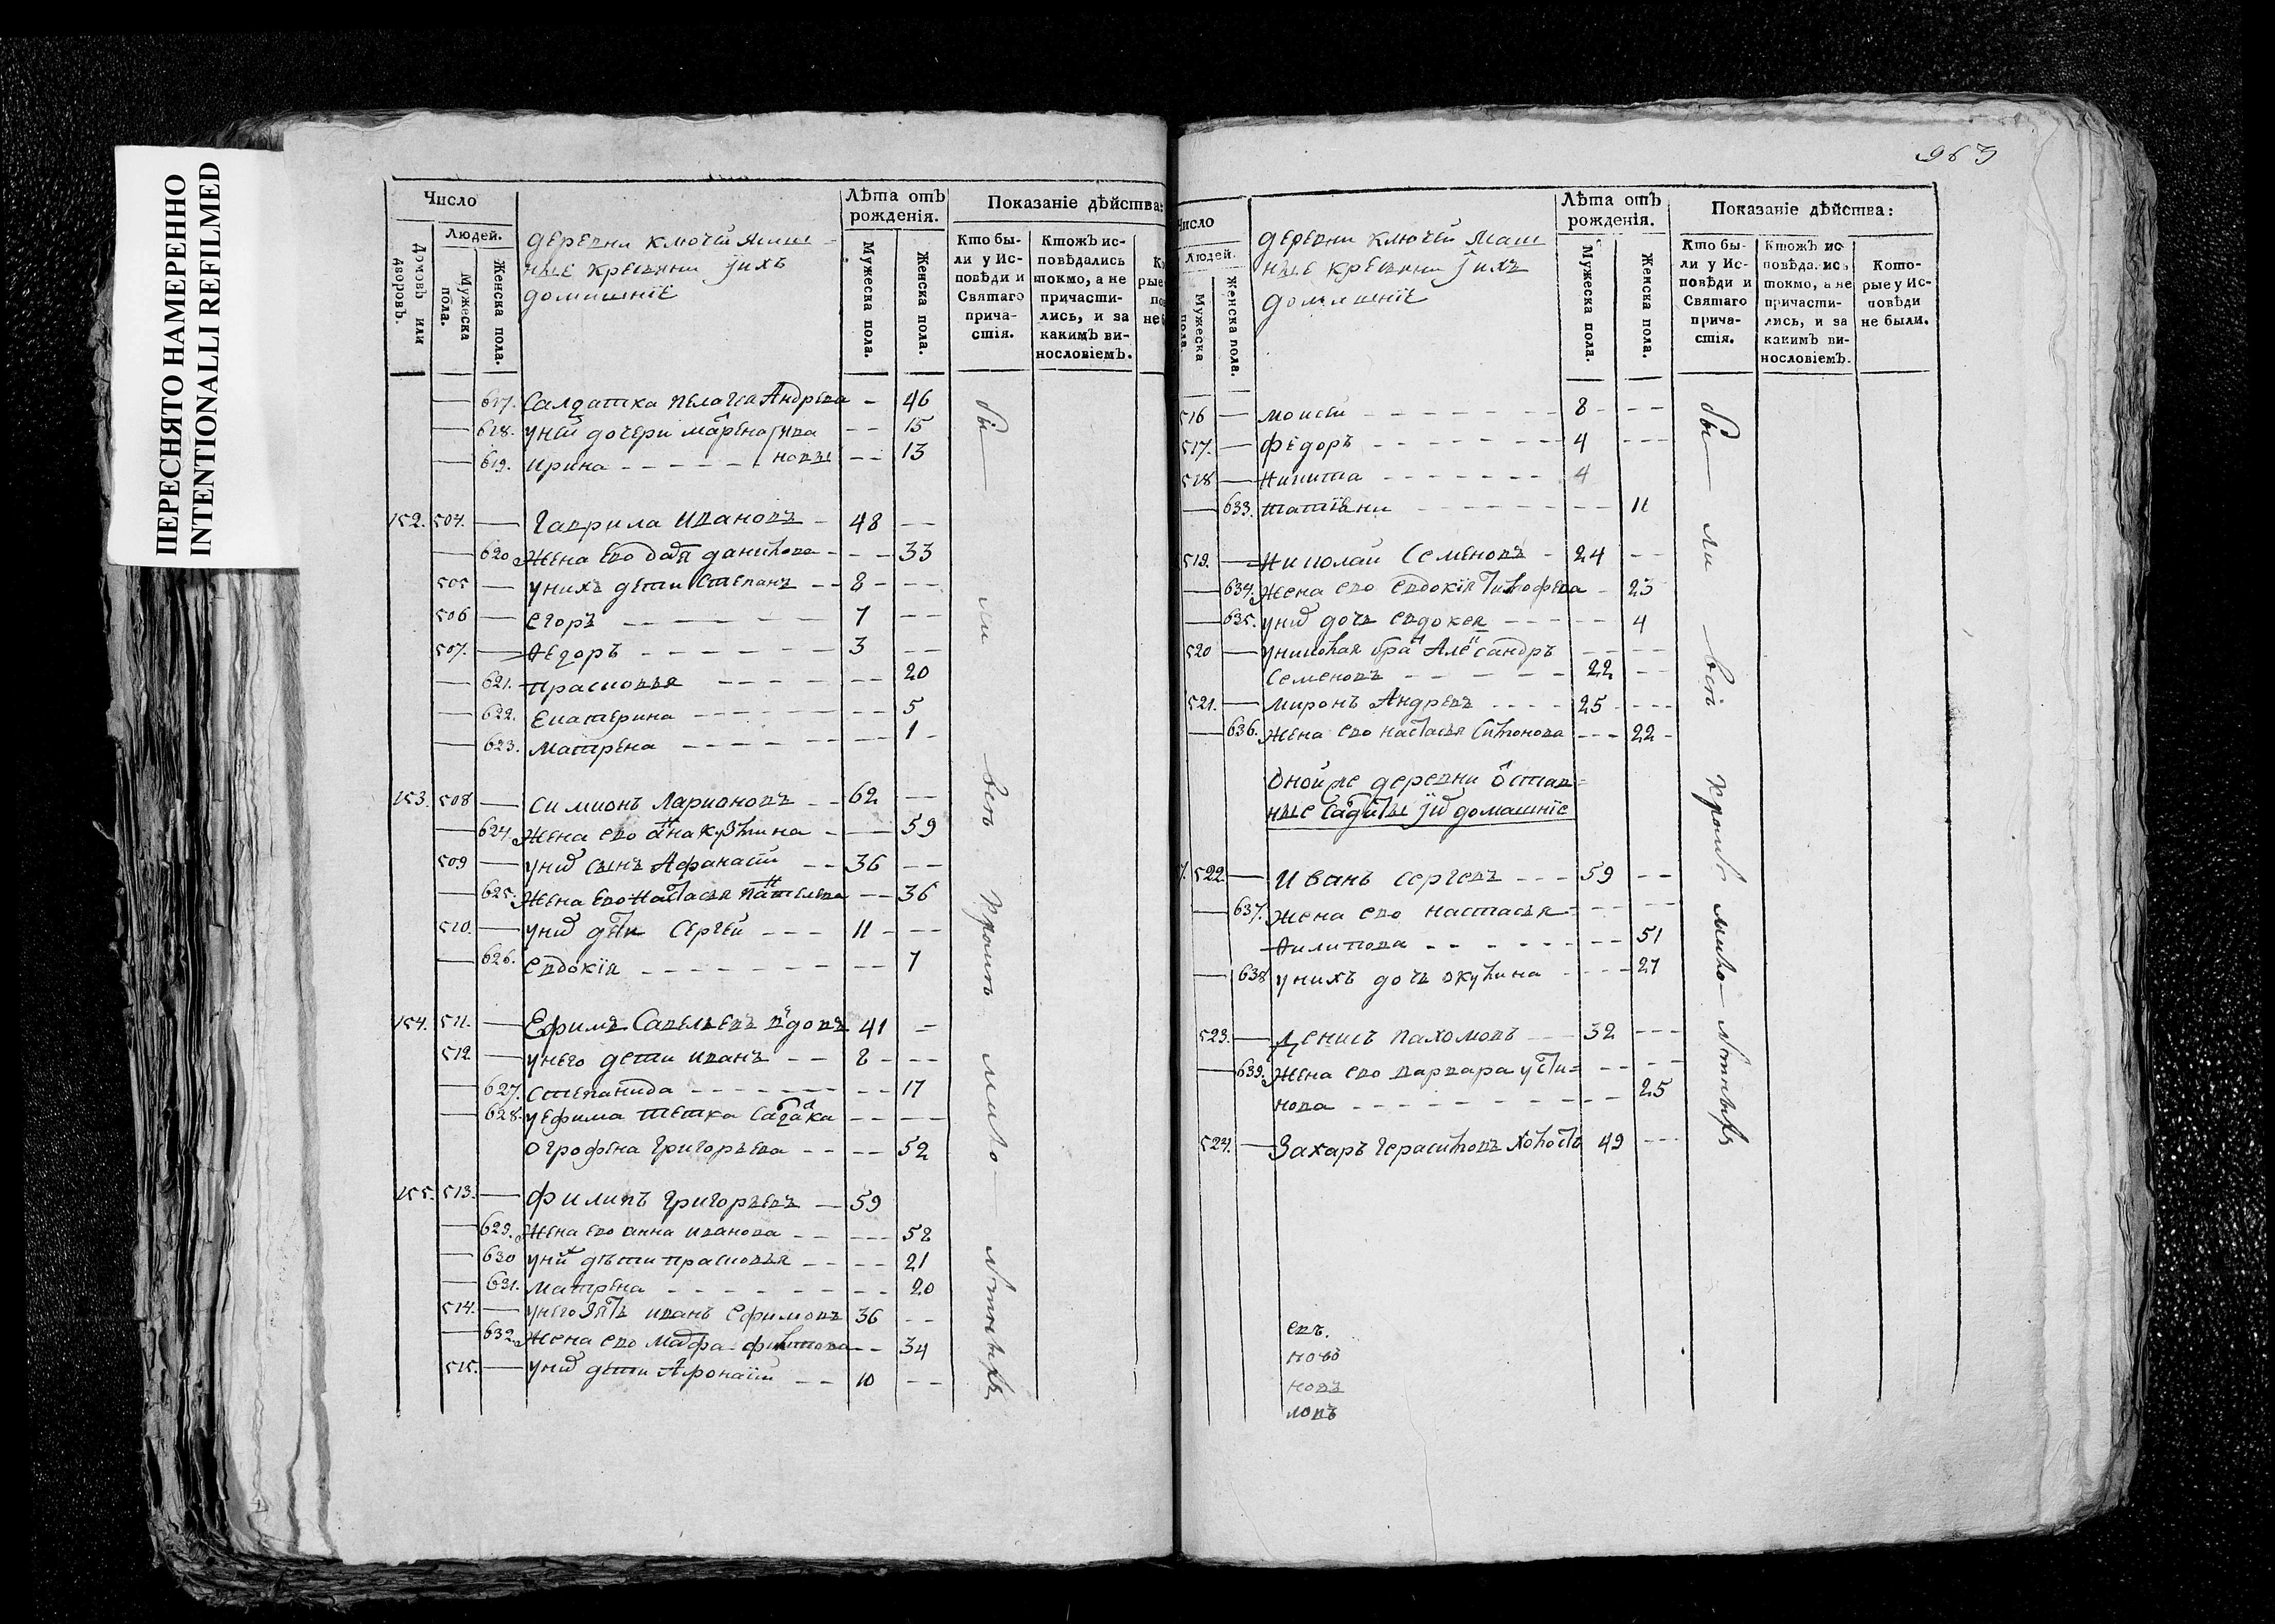 ПЕРЕСНЯТО НАМЕРЕННО
INTENTIONALLI REFILMED
Число
Людей.
Домовъ или дворовъ.
Мужеска пола.
Женска пола.
деревни ключей
ные крестяни ї ихъ
домашнїе
Лѣта отъ рожденія.
Мужеска пола.
Женска пола.
Показаніе дѣйства:
Кто бы-
ли у Ис-
повѣди и
Святаго
прича-
стія.
Ктожъ ис-
повѣдались
токмо, а не
причасти-
лись, и за
какимъ ви-
нословіемъ.
617. Салдатка пелагея Андрева - 46
618. у ней дочери марена - - 15
619. ирина - - - - - 13
152. 504. Гаврила Ивановъ - 48 - -
620 жена ево данилова - - - 33
505 у нихъ дети Степанъ - - 8 - - -
506 Егоръ - - - - - 7 - -
507. Ѳедоръ - - - - - 3 - -
621. прасковья - - - - - - 20
622. Екатерина - - - - - - 5
623. Матрена - - - - - - 1 -
153. 508 Симионъ Ларионовъ - - 62 - -
624 жена ево анна кузмина - - - 59
509 у нихъ сынъ Афанасий - - 36 - -
625. жена ево настасья - - 36
510. у нихъ дети Сергей - - - 11 - - -
626. Евдокїя - - - - - - - 7
154. 511. Ефимъ Савельевъ вдовъ 41 -
512 у него дети иванъ - - 8 - - -
627. Степанида - - - - - - 17
628. у ефима тетка салдатка - - - -
Огрофена григорьева - - - - 52
155. 513. Филипъ григорьевъ - 59
629. жена ево анна иванова - - - - - 58
630 у них дѣти прасковья - - - - 21
631. Матрена - - - - - - 20
514. у него зять иванъ Ефимовъ 36 - -
632. жена ево Марфа филипова - - 34
515. у нихъ дети Афонасий - - 10 - -
бы — ли всѣ кромѣ мало — лѣтнѣхъ
963
Число
Людей.
Мужеска пола.
Женска пола.
деревни ключей
ные крестяни ї ихъ
домашнїе
Лѣта отъ рожденія.
Мужеска пола.
Женска пола.
Показаніе дѣйства:
Кто бы-
ли у Ис-
повѣди и
Святаго
прича-
стія.
Ктожъ ис-
повѣдались
токмо, а не
причасти-
лись, и за
какимъ ви-
нословіемъ.
Кото-
рые у Ис-
повѣди
не были.
516 Моисей - - - - - 8 - - -
517. Федоръ - - - - - 4 - - -
518 Никита - - - - - 4
633. - - - - - - 11
519. Николай Семеновъ - 24 - -
634. жена ево Евдокїя Тимофева - 23
635. у нихъ дочь Евдокея - - - - - 4
520 у николая братъ Александръ - - - -
Семеновъ - - - - - 22 - -
521. Миронъ Андревъ - - - - 25 - - - -
636. жена ево настасья Симонова - - - 22 -
Оной же деревни отстав=
ные салдаты ї ихъ домашнїе
522 Иванъ Сергевъ - - - 59 - -
637. жена ево настасья - - - - -
Филипова - - - - - - - 51
638 у нихъ дочь окулина - - - - 27
523. Денисъ пахомовъ - - - 32 - - -
639. жена ево варвара усти= - - - -
нова - - - - - - - - - 25
524. Захаръ герасимовъ холостъ 49 - - -
евъ.
ново
новъ
ловъ
бы — ли всѣ кромѣ мало — лѣтнѣхъ